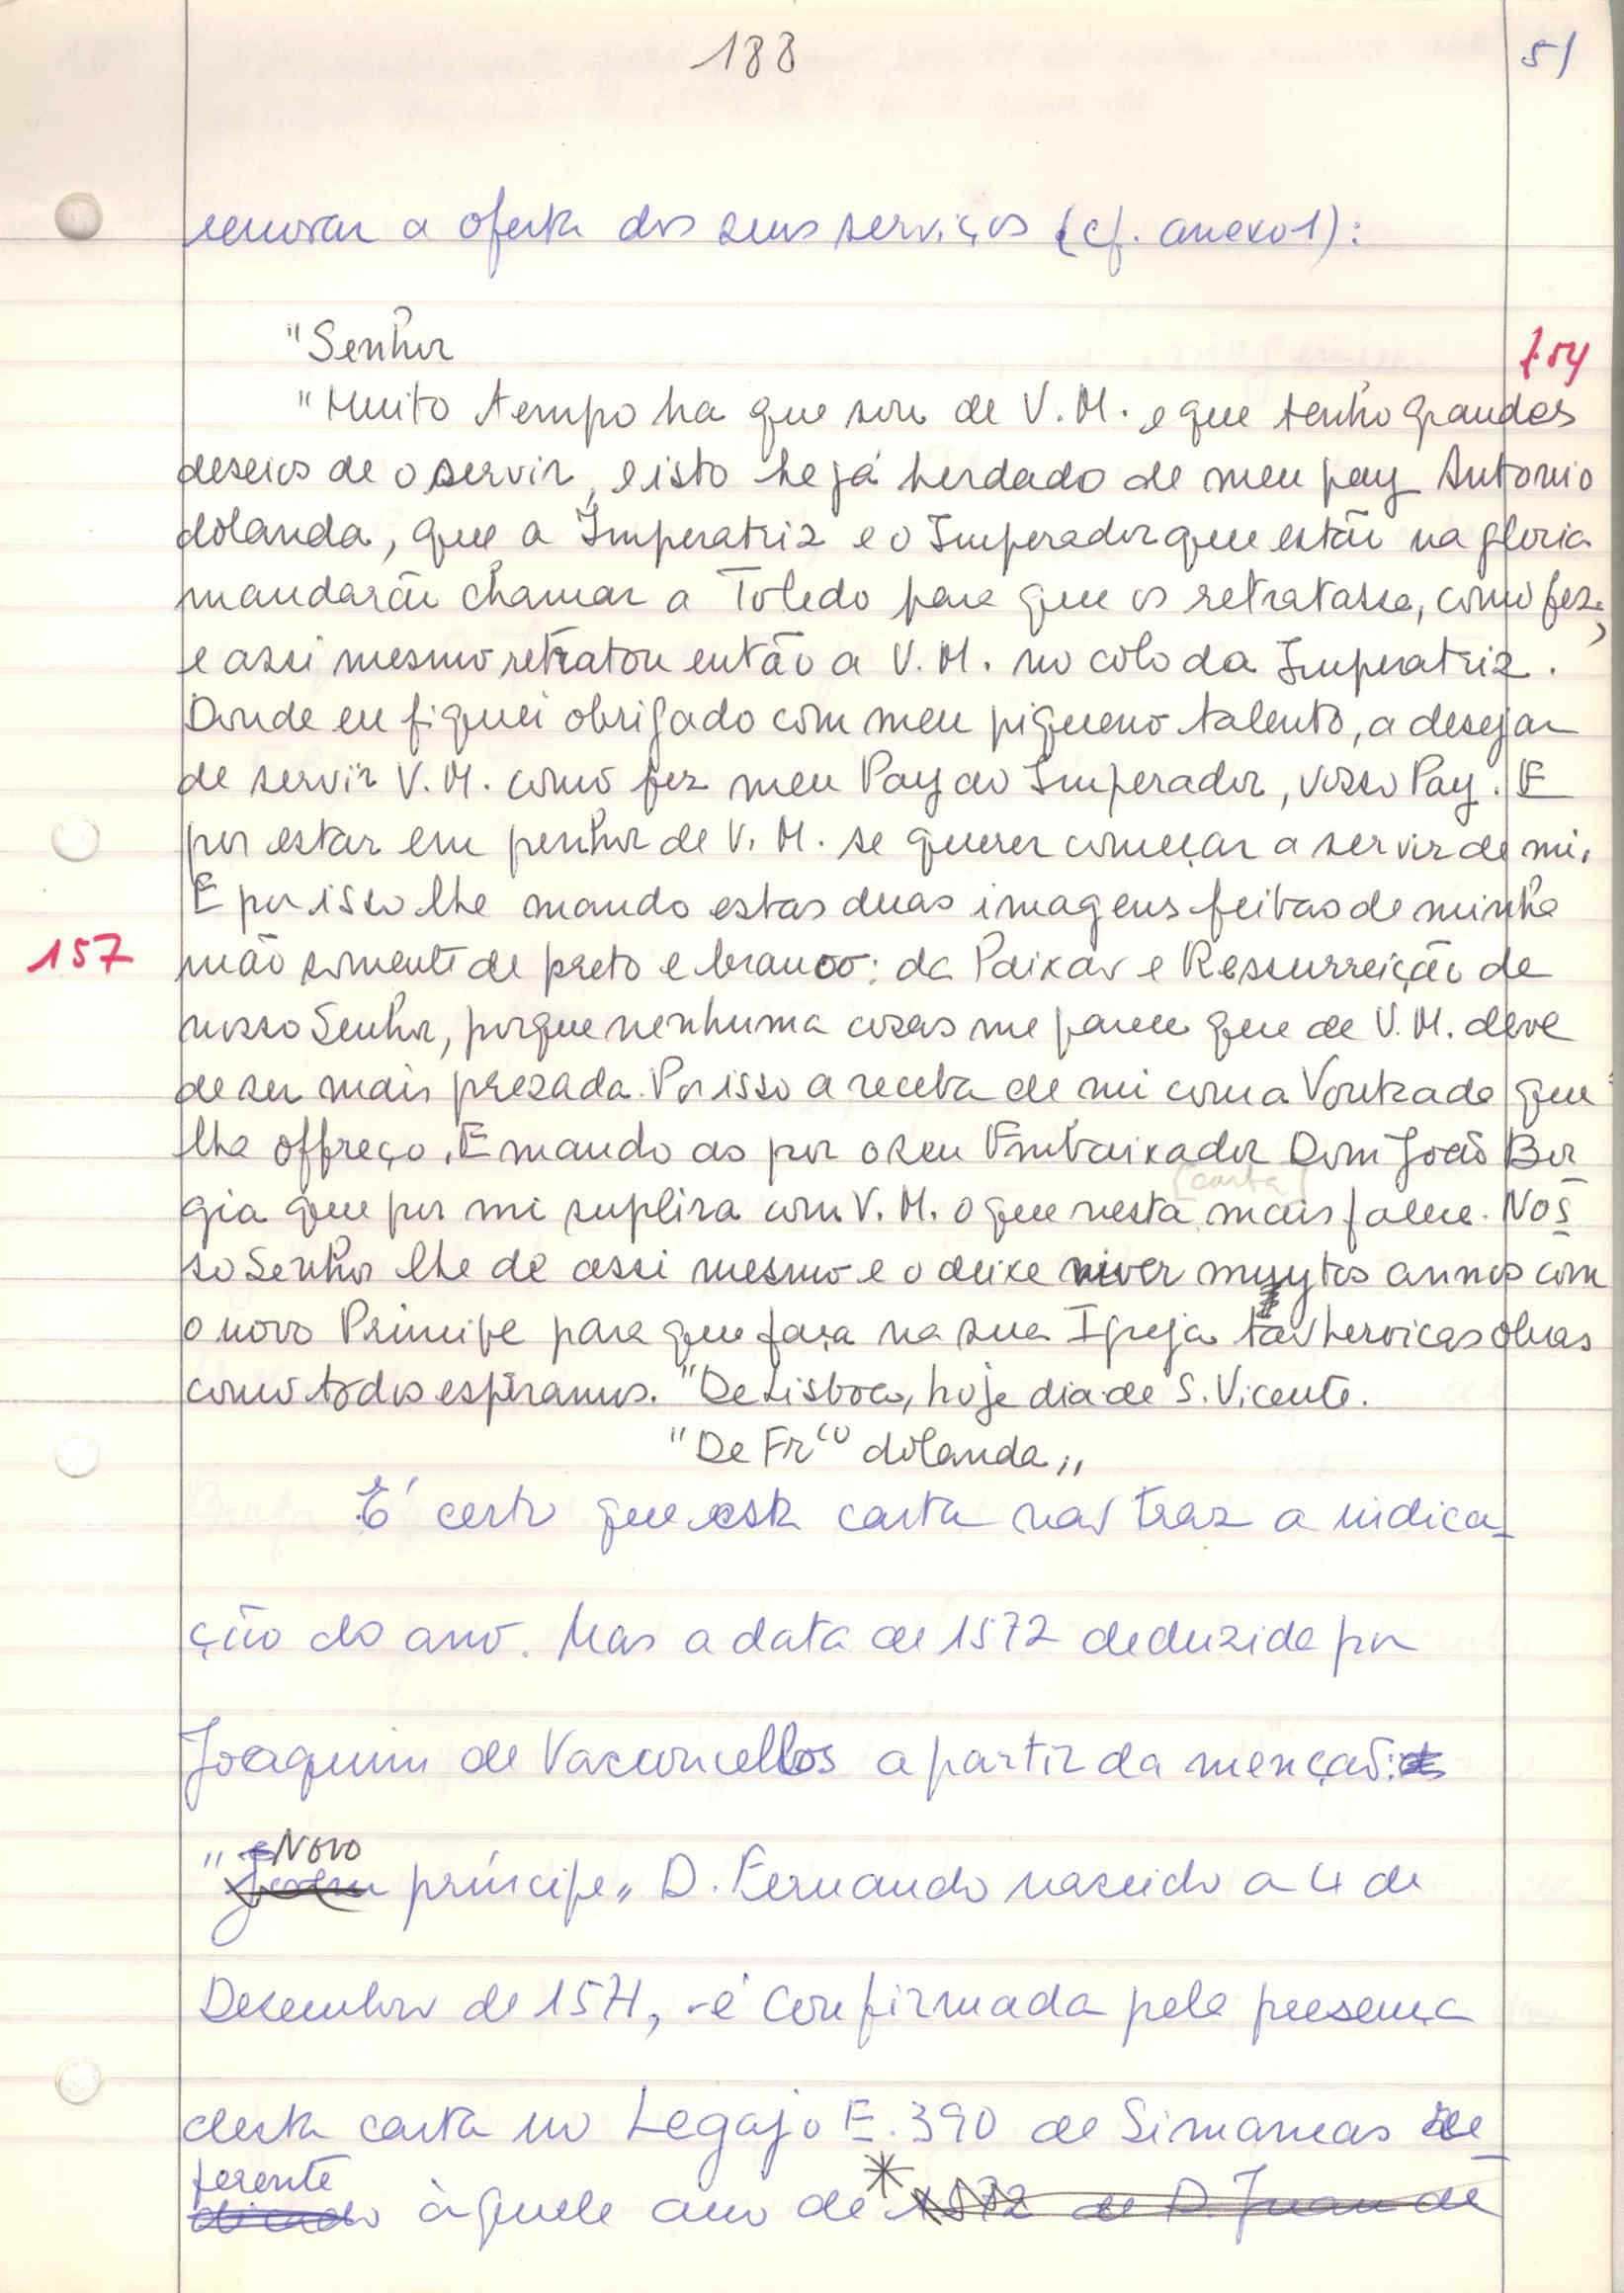 188
51
renovar a oferta dos seus serviços (cf. anexo 1):
"Senhor
"Muito tempo ha que sou de V. M. e que tenho grandes
deseios de o servir, e isto he já herdado de meu pay Antonio
dolanda, que a Imperatriz e o Imperador que estão na gloria
mandarão chamar a Toledo para que os retratasse, como fez;
e assi mesmo retratou então a V. M. no colo da Imperatriz.
Donde eu fiquei obrigado com meu piqueno talento, a desejar
de servir V. M. como fez meu Pay ao Imperador, vosso Pay. E
por estar em penhor de V. M. se querer começar a servir de mi.
E por isso lhe mando estas duas imagens feitas de minha
157
mão somente de preto e branco: da Paixão e Ressurreição de
nosso Senhor, porque nenhuma cosas me parece que de V. M. deve
de ser mais prezada. Por isso a receba de mi com a Vontade que
lhe offreço. E mando as por o seu Embaixador Dom João Bor
gia que por mi suplira com V. M. o que nesta [carta] mais falece. Nos
so Senhor lhe de assi mesmo e o deixe viver muytos annos com
o novo Principe para que faça na sua Igreja tão heroicas obras
como todos esperamos. "De Lisboa, hoje dia de S. Vicente.
"De Frco dolanda"
É certo que esta carta não traz a indica
ção do ano. Mas a data de 1572 deduzida por
Joaquim de Vasconcellos a partir da menção:
"Novo príncipe" D. Fernando nascido a 4 de
Dezembro de 1571, - é confirmada pela presença
desta carta no Legajo E. 390 de Simancas re
ferente àquele ano de * 1572 de D. Juan de